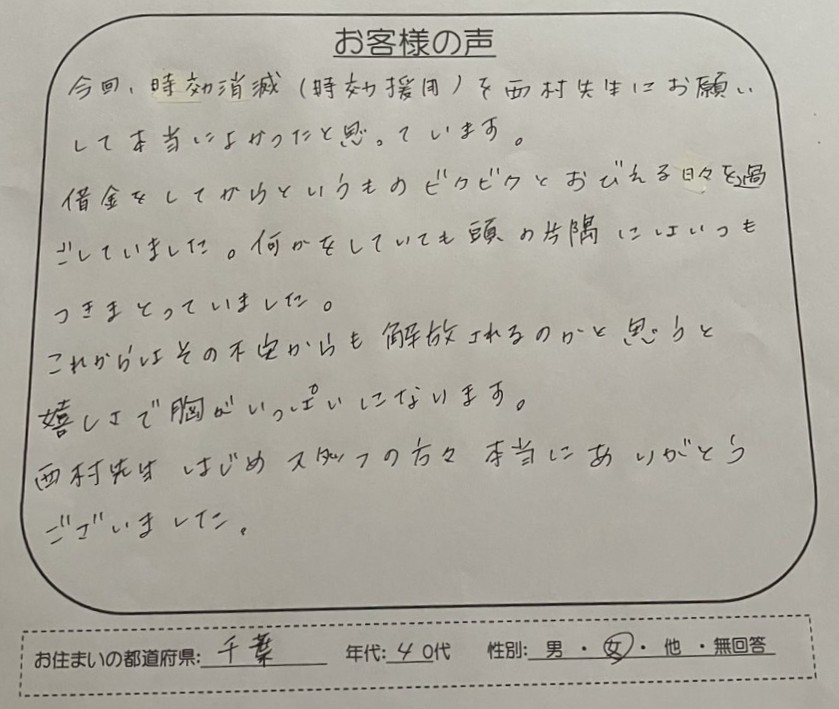 お客様の声
今回、時効消滅(時効援用)を西村先生にお願い
して本当によかったと思っています。
借金をしてからというものビクビクとおびえる日々を過
ごしていました。何かをしていても頭の片隅にはいつも
つきまとっていました。
これからはその不安からも解放されるのかと思うと
嬉しさで胸がいっぱいになります。
西村先生はじめスタッフの方々本当にありがとう
ございました。
お住まいの都道府県:千葉 年代:40代 性別:男・女・他・無回答